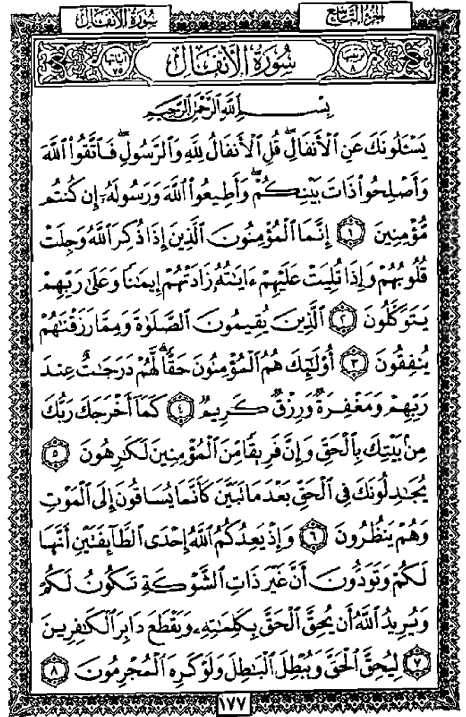 سورة الأنفال
الجزء التاسع
ترتيبها ٨
سورة الأنفال
آياتها ٧٥
بِسْمِ اللَّهِ الرَّحْمَٰنِ الرَّحِيمِ
يَسْـَٔلُونَكَ عَنِ ٱلْأَنفَالِۖ قُلِ ٱلْأَنفَالُ لِلَّهِ وَٱلرَّسُولِۖ فَٱتَّقُوا۟ ٱللَّهَ
وَأَصْلِحُوا۟ ذَاتَ بَيْنِكُمْۖ وَأَطِيعُوا۟ ٱللَّهَ وَرَسُولَهُۥٓ إِن كُنتُم
مُّؤْمِنِينَ ١ إِنَّمَا ٱلْمُؤْمِنُونَ ٱلَّذِينَ إِذَا ذُكِرَ ٱللَّهُ وَجِلَتْ
قُلُوبُهُمْ وَإِذَا تُلِيَتْ عَلَيْهِمْ ءَايَٰتُهُۥ زَادَتْهُمْ إِيمَٰنًا وَعَلَىٰ رَبِّهِمْ
يَتَوَكَّلُونَ ٢ ٱلَّذِينَ يُقِيمُونَ ٱلصَّلَوٰةَ وَمِمَّا رَزَقْنَٰهُمْ
يُنفِقُونَ ٣ أُو۟لَٰٓئِكَ هُمُ ٱلْمُؤْمِنُونَ حَقًّاۚ لَّهُمْ دَرَجَٰتٌ عِندَ
رَبِّهِمْ وَمَغْفِرَةٌ وَرِزْقٌ كَرِيمٌ ٤ كَمَآ أَخْرَجَكَ رَبُّكَ
مِنۢ بَيْتِكَ بِٱلْحَقِّ وَإِنَّ فَرِيقًا مِّنَ ٱلْمُؤْمِنِينَ لَكَٰرِهُونَ ٥
يُجَٰدِلُونَكَ فِى ٱلْحَقِّ بَعْدَ مَا تَبَيَّنَ كَأَنَّمَا يُسَاقُونَ إِلَى ٱلْمَوْتِ
وَهُمْ يَنظُرُونَ ٦ وَإِذْ يَعِدُكُمُ ٱللَّهُ إِحْدَى ٱلطَّآئِفَتَيْنِ أَنَّهَا
لَكُمْ وَتَوَدُّونَ أَنَّ غَيْرَ ذَاتِ ٱلشَّوْكَةِ تَكُونُ لَكُمْ
وَيُرِيدُ ٱللَّهُ أَن يُحِقَّ ٱلْحَقَّ بِكَلِمَٰتِهِۦ وَيَقْطَعَ دَابِرَ ٱلْكَٰفِرِينَ
٧ لِيُحِقَّ ٱلْحَقَّ وَيُبْطِلَ ٱلْبَٰطِلَ وَلَوْ كَرِهَ ٱلْمُجْرِمُونَ ٨
١٧٧